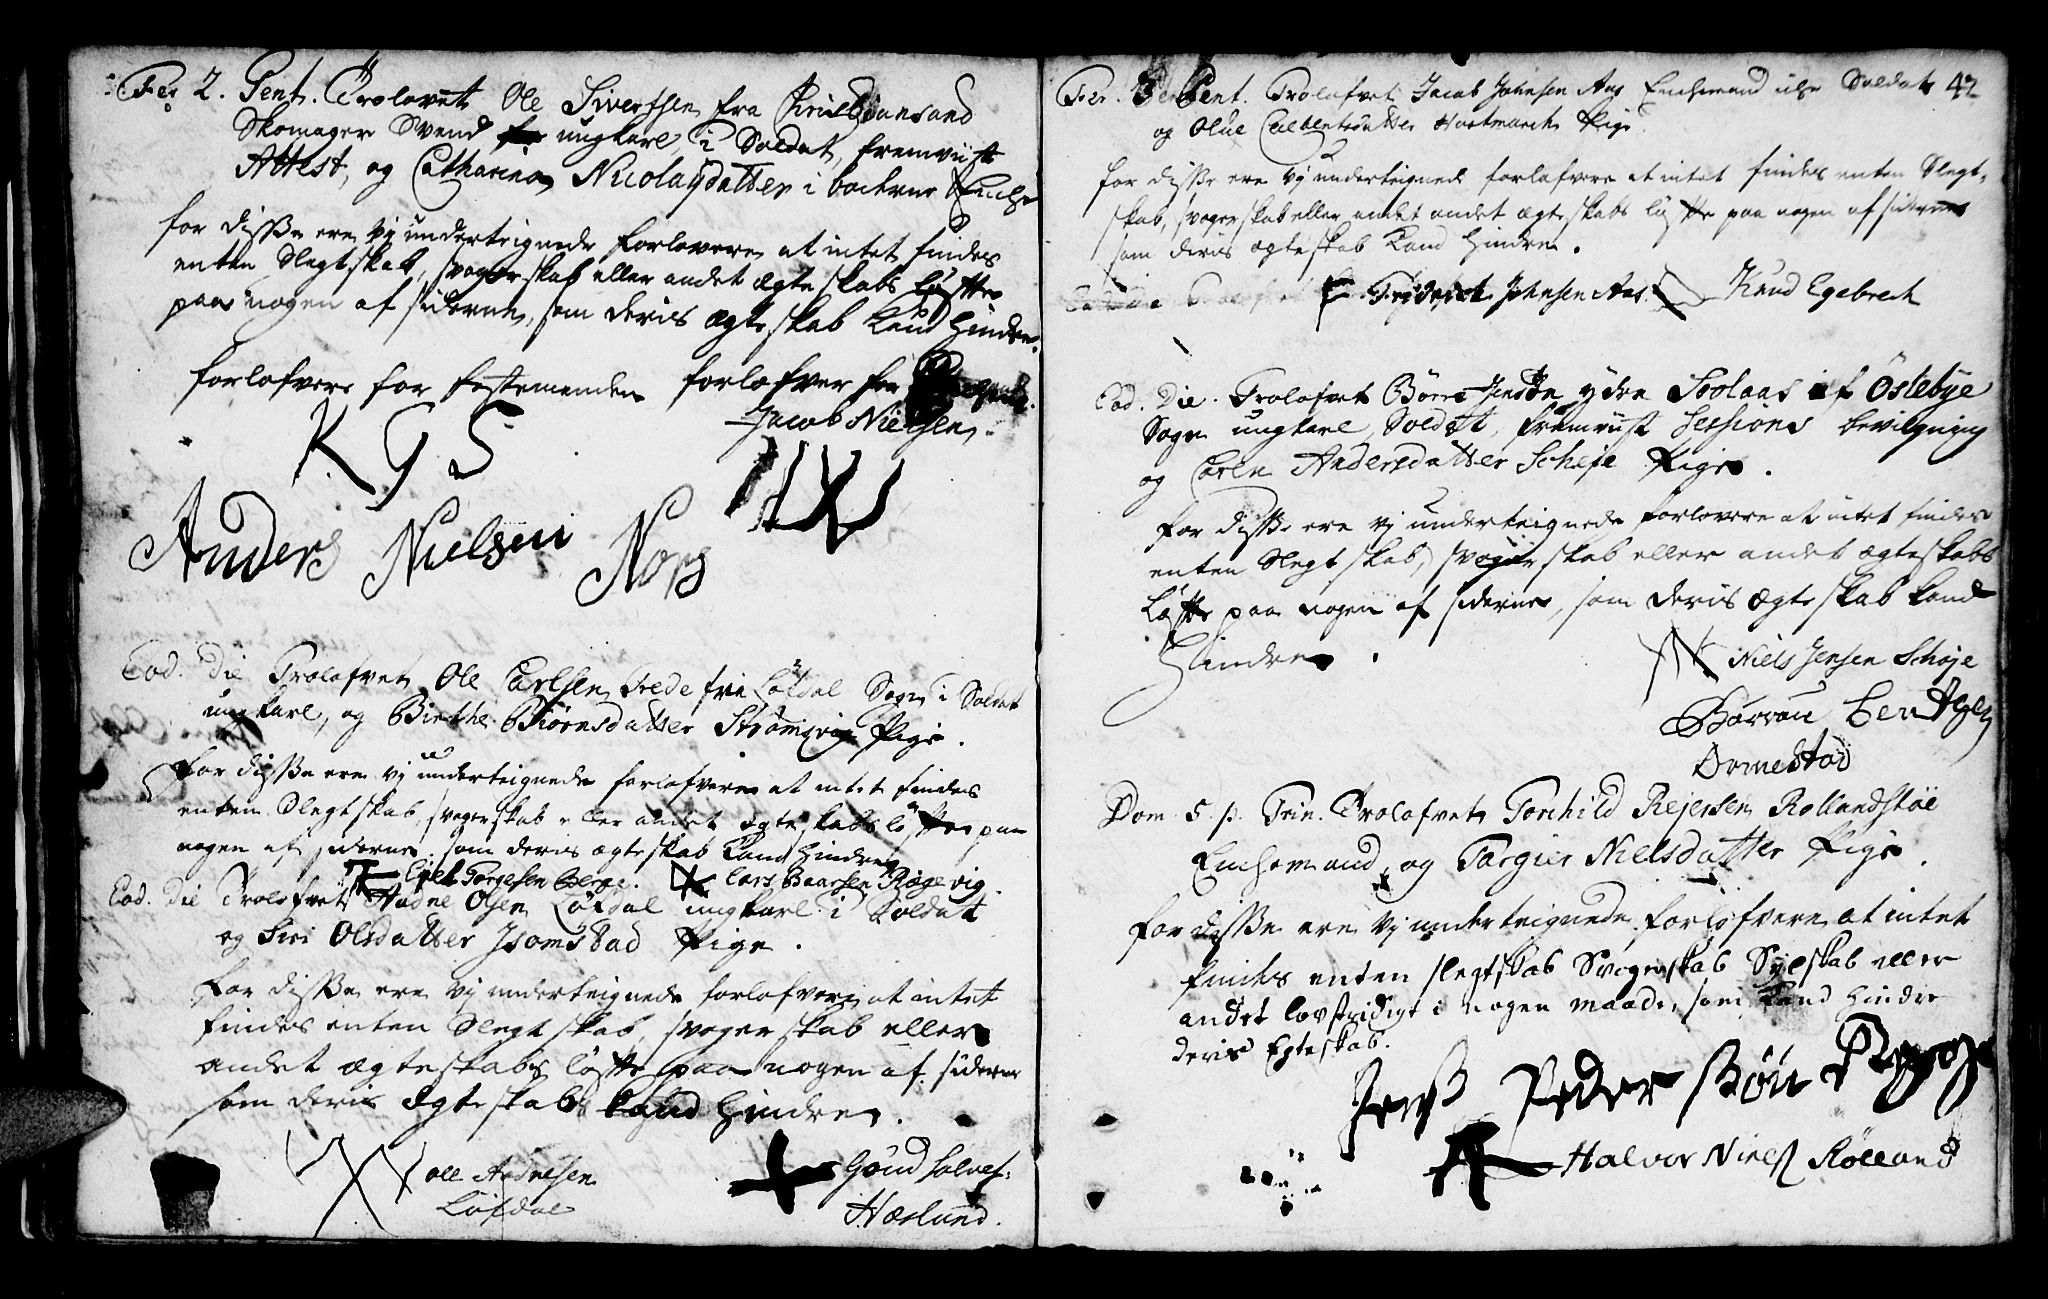 Fer 2. Pent. Trolovet Ole Siversen fra Christiansand
Skomager Svend ungkarl, i Soldat, fremviiste
Attest, og Catharina Nicolaysdatter i boende
for disse ere vj underteignede forlovere at intet findes
enten Slegtskab, svogerskab eller andet ægteskabs løffte
paa nogen af siderne, som deris ægteskab kand hindre.
forlofvere for festemanden forlofver for
Jacob Nielsen
K G S
Anders Nielsen Nors
Eod. Die Trolofvet Ole Carlsen Trede fra Løfdal Sogn i Soldat
ungkarl, og Birthe Biørnsdatter Strømsvig Pige.
for disse ere vj underteignede forlofvere at intet findes
enten Slegtskab, svogerskab eller andet ægteskabs løffte paa
nogen af siderne som deris ægteskab kand hindre
Torgesen Berge. Lars Baarsen Røgevig.
Eod. Die Trolofvet Aadne Olsen Løfdal ungkarl i Soldat
og Siri Olsdatter Isomstad Pige.
for disse ere vj underteignede forlofvere at intet
findes enten Slegtskab, svogerskab eller
andet ægteskabs løffte paa nogen af siderne
som deris ægteskab kand hindre.
Ole Andresen
Løfdal
Gound Salves:
Hæslund.
Fer. 3 Pent. Trolofvet Jacob Johnsen Aas Enchemand Soldat 42
og Olue Hortmarch Pige
for disse ere vj underteignede forlofvere at intet findes enten Slegt-
skab, svogerskab eller andet andet ægteskabs løffte paa nogen af siderne
som deris ægteskab kand hindre.
Friderich Johnsen Aas Knud Egebrech
Eod. Die. Trolofvet Børre Jensen ydre Stolaas af Østebye
Sogn ungkarl Soldat, fremviist Sessions bevilgning
og Caren Andersdatter Scheje Pige.
for disse ere vj underteignede forlovere at intet findes
enten Slegtskab, svogerskab eller andet ægteskabs
løffte paa nogen af siderne, som deris ægteskab kand
hindre.
Niels Jensen Schøje
Barrou Bentsen
Domestad
Dom. 5. p. Trin. Trolofvet Torchild Rejersen Rollandstøe
Enchemand, og Targier Nielsdatter Pige.
for disse ere vj underteignede forlofvere at intet
findes enten slegtskab Svogerskab Sylskab eller
andet lovstridigt i nogen maade, som kand hindre
deris Egteskab.
Jens Peder Søn Rygge
Halvor Niels Rølland